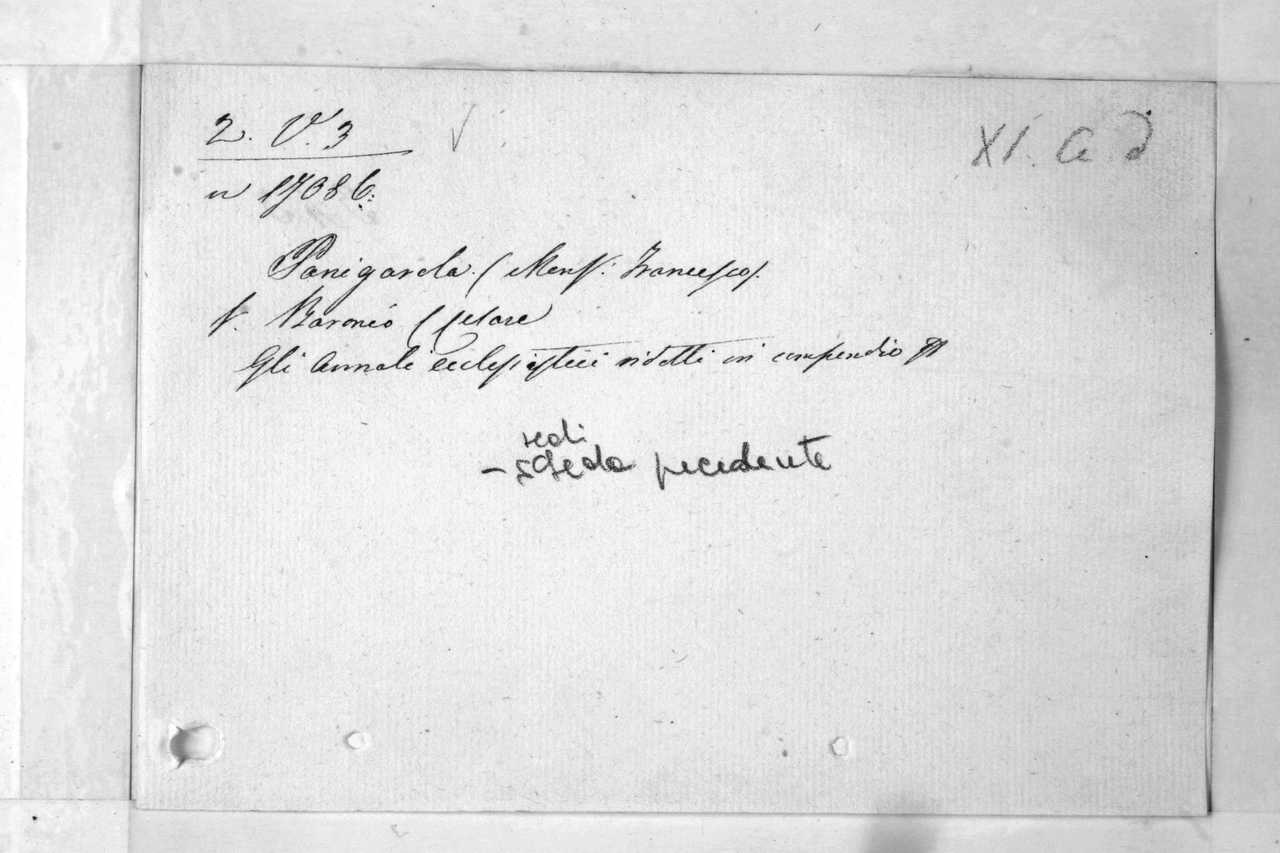 2. V. 3 √
XI. C. d
n 17086.
Panigarola. (Mons: Francesco).
V. Baronio (Cesare
Gli Annali ecclesiastici ridotti in compendio
vedi
- scheda precedente